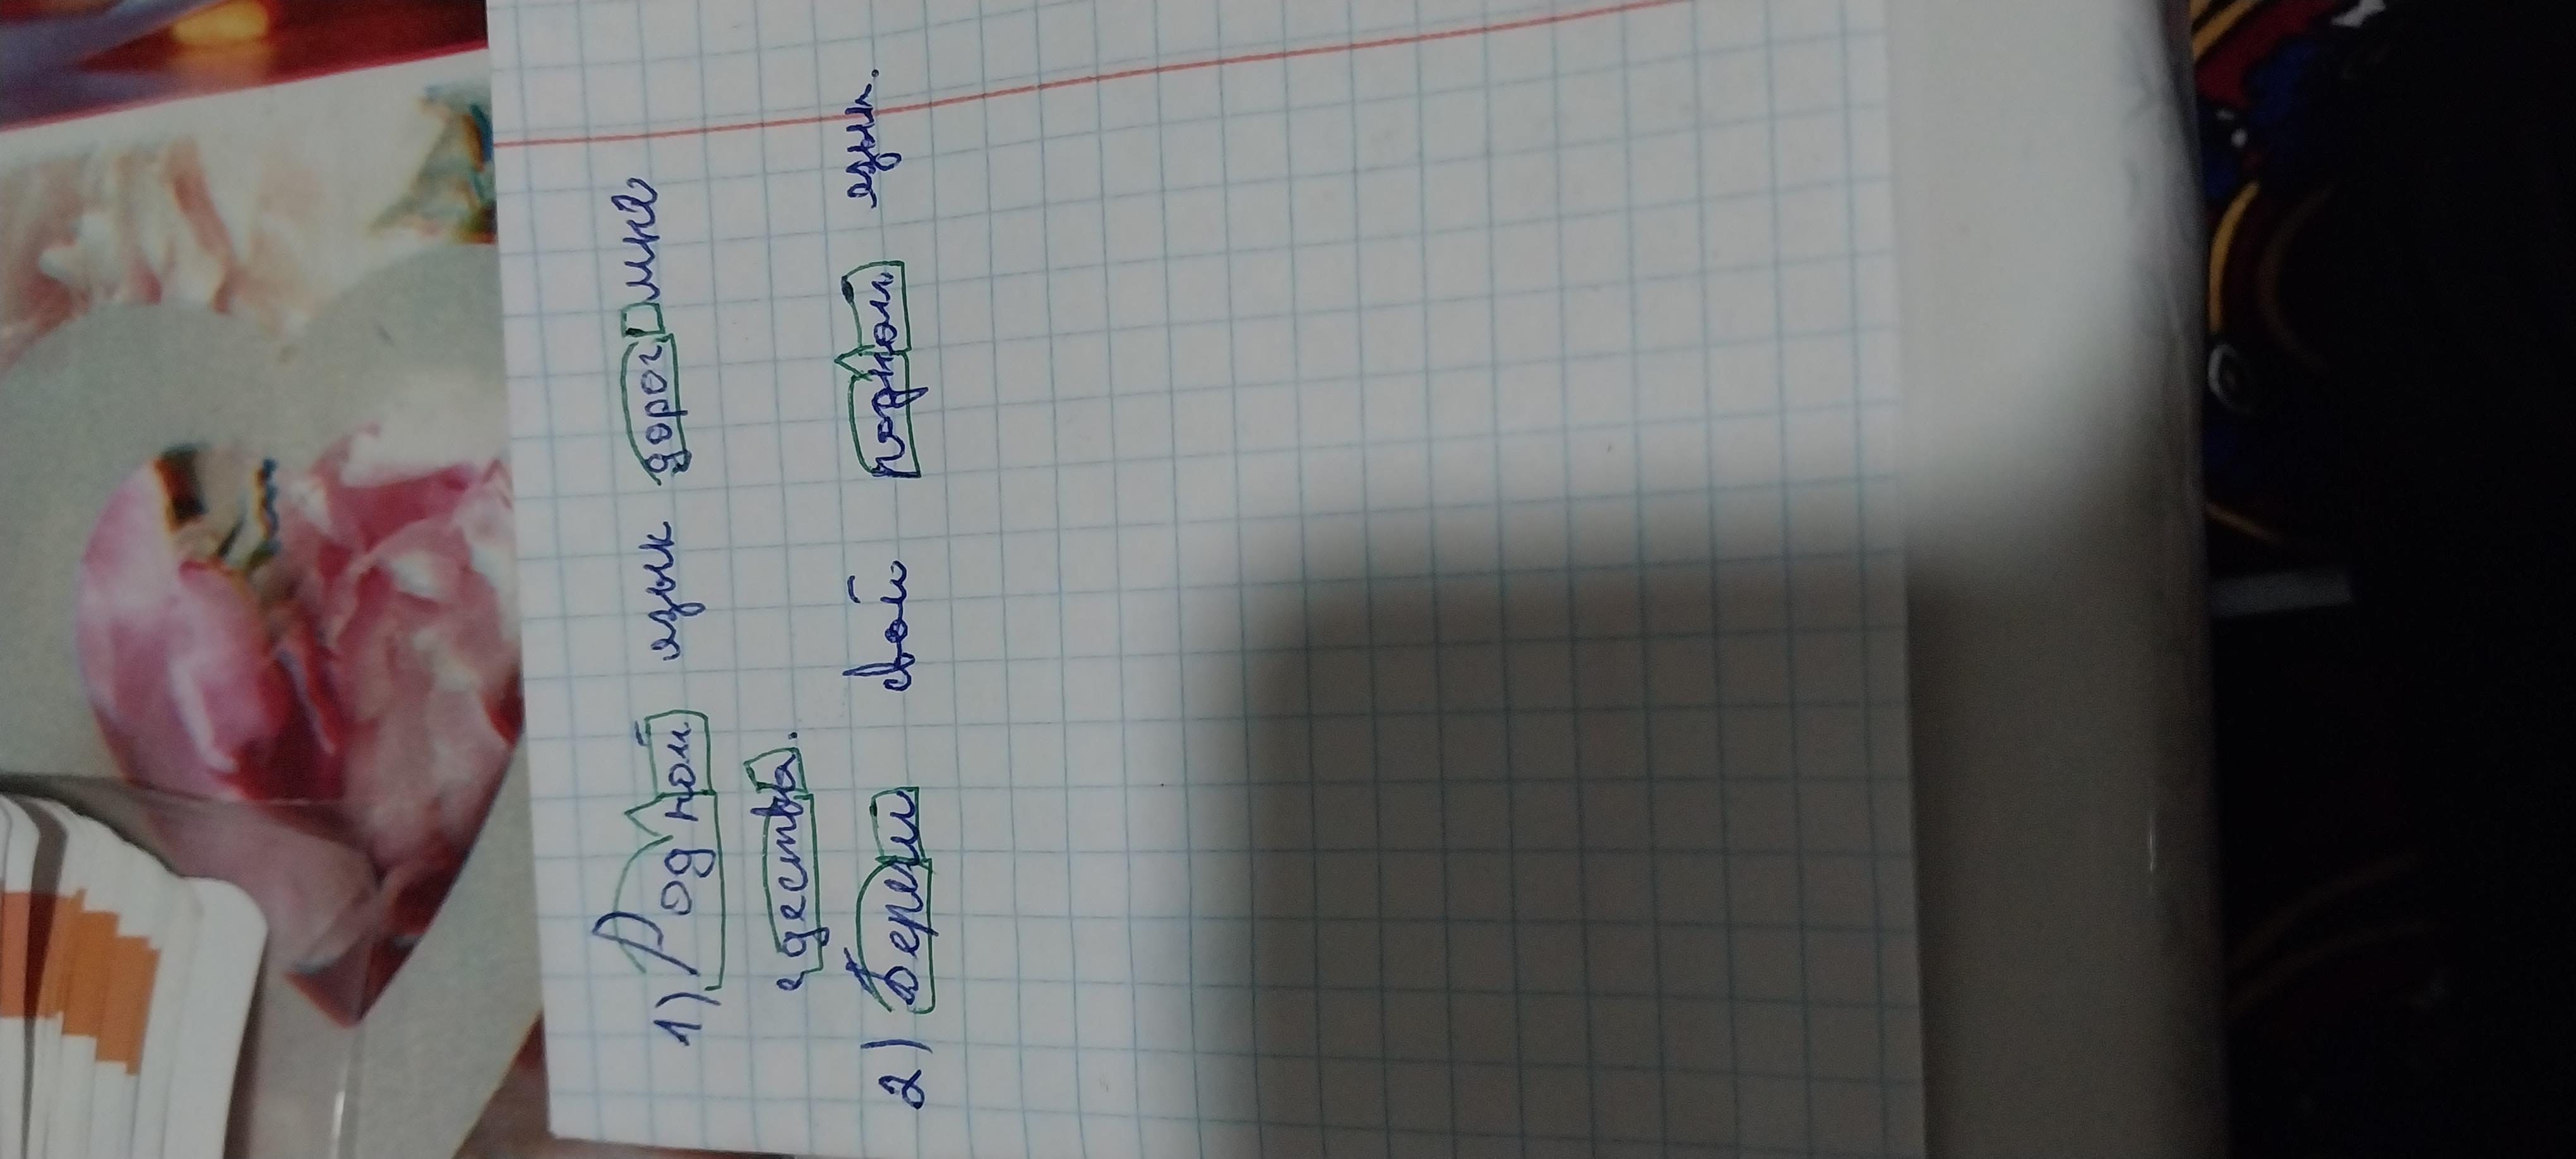 1) Родной язык дорог мне
с детства.
2) Береги свой родной язык.